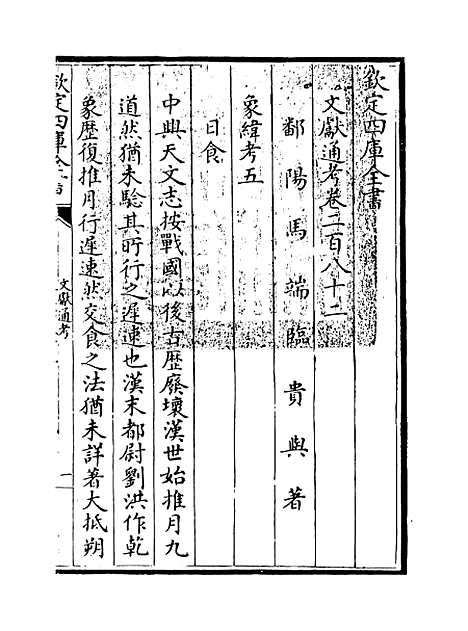 欽定四庫全書
文獻通考卷二百八十二
鄱陽馬端臨貴與著
象緯考五
日食
中興天文志按戰國以後古歴廢壞漢世始推月九
道然猶未驗其所行之遲速也漢末都尉劉洪作乾
象歴復推月行遲速然交食之法猶未詳著大抵朔
欽定四庫全書
文獻通考
一